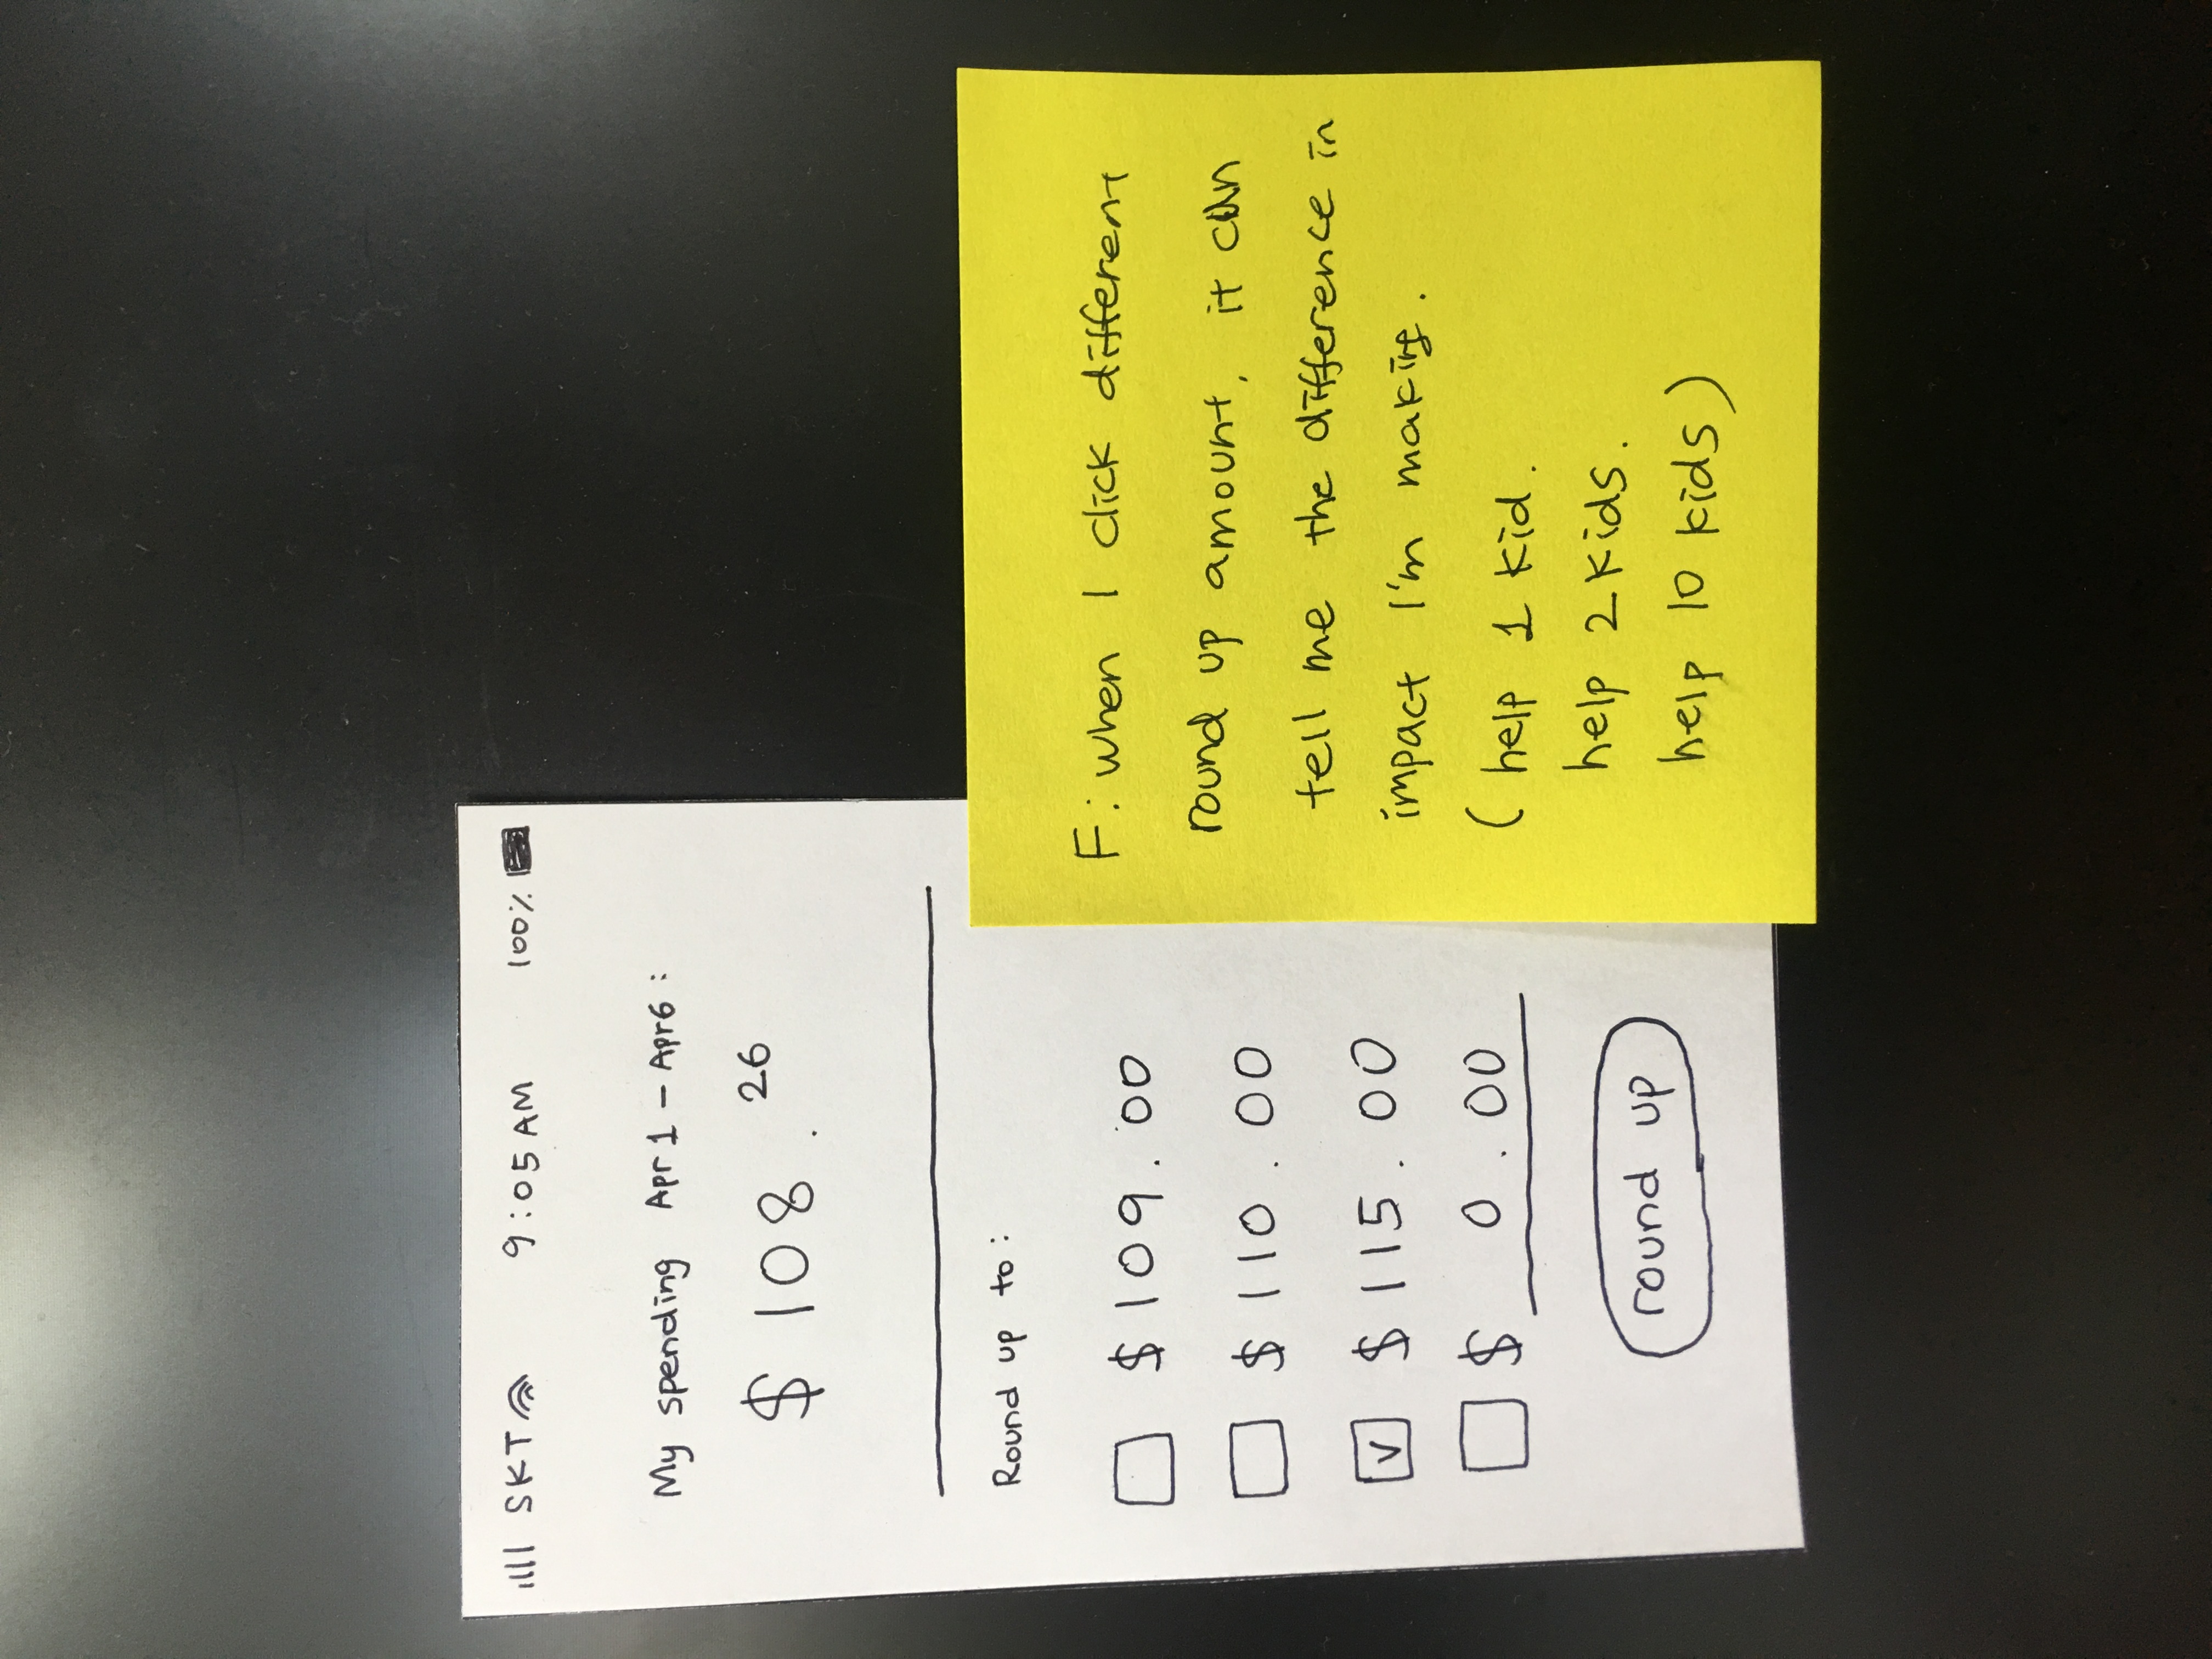 SKT 9:05 AM 100%
My spending Apr 1 - Apr 6 :
$ 108.26
Round up to :
$ 109.00
$ 110.00
v $ 115.00
$ 0.00
round up
F: when I click different
round up amount, it can
tell me the difference in
impact I'm making.
( help 1 kid.
help 2 kids.
help 10 kids )